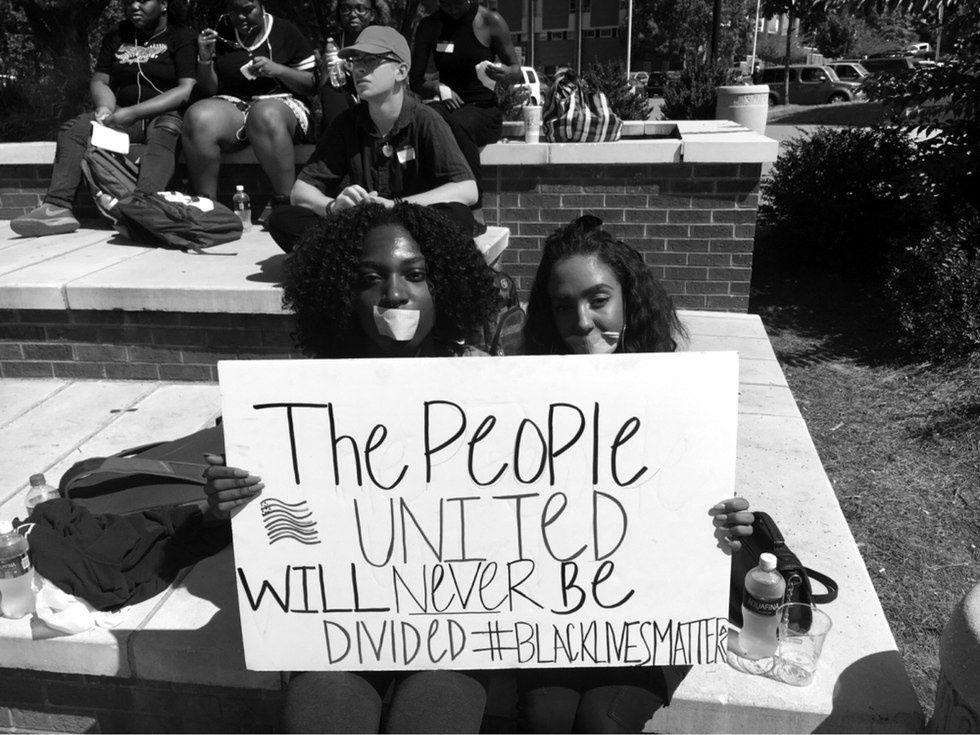 The People
UNITED
WILL NEVER BE
DIVIDED #BLACKLIVESMATTER
AQUAFINA